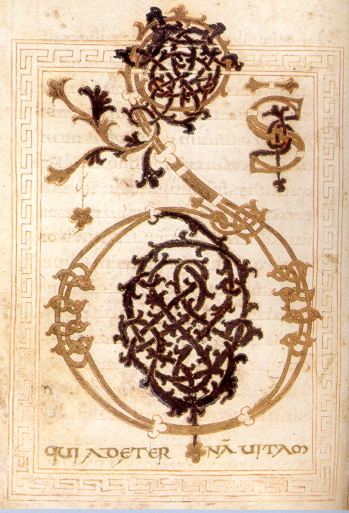 D S̄
QUI ADETER NĀ UITAM